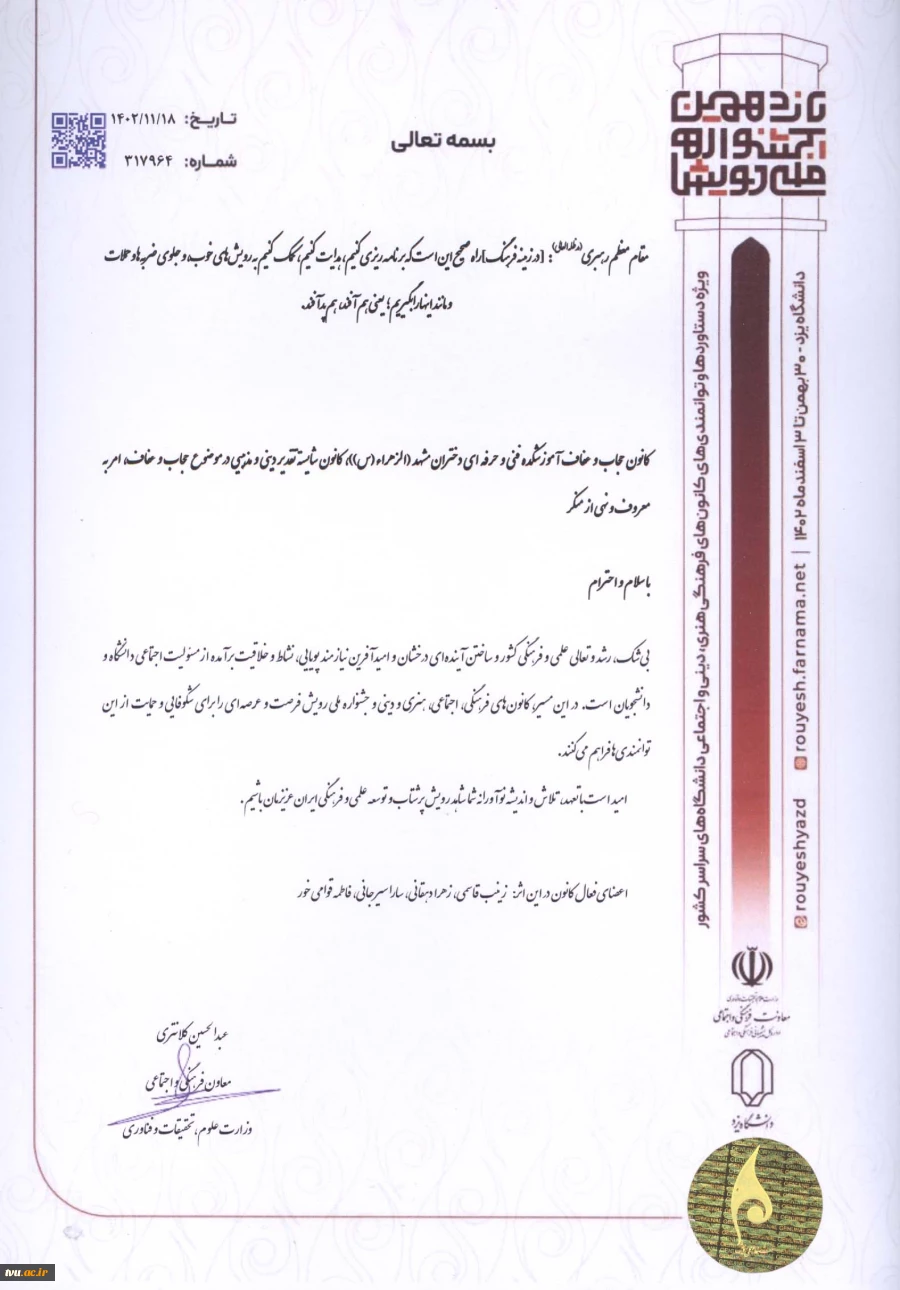 یازدهمین
جشنواره
ملی رویش‌ها
تاریخ: ۱۴۰۲/۱۱/۱۸
شماره: ۳۱۷۹۶۴
بسمه تعالی
مقام معظم رهبری(مدظله‌العالی): [در زمینه فرهنگ] راه صحیح این است که برنامه ریزی کنیم، هدایت کنیم، کمک کنیم به رویش های خوب، و جلوی ضربه‌ها و حملات
و مانند اینها را بگیریم؛ یعنی هم آفند، هم پدآفند.
کانون حجاب و عفاف آموزشکده فنی و حرفه ای دختران مشهد ((الزهراء (س)))، کانون شایسته تقدیر دینی و مذهبی در موضوع حجاب و عفاف، امر به
معروف و نهی از منکر
با سلام و احترام
بی شک، رشد و تعالی علمی و فرهنگی کشور و ساختن آینده‌ای درخشان و امیدآفرین نیازمند پویایی، نشاط و خلاقیت برآمده از مسئولیت اجتماعی دانشگاه و
دانشجویان است. در این مسیر، کانون های فرهنگی، اجتماعی، هنری و دینی و جشنواره ملی رویش فرصت و عرصه‌ای را برای شکوفایی و حمایت از این
توانمندی ها فراهم می کنند.
امید است با تعهد، تلاش و اندیشه نوآورانه شما شاهد رویش پرشتاب و توسعه علمی و فرهنگی ایران عزیزمان باشیم.
اعضای فعال کانون در این اثر: زینب قاسمی، زهرا دهقانی، سارا سیرجانی، فاطمه قوامی خور
عبدالحسین کلانتری
معاون فرهنگی و اجتماعی
وزارت علوم، تحقیقات و فناوری
ویژه دستاوردها و توانمندی‌های کانون‌های فرهنگی هنری، دینی و اجتماعی دانشگاه‌های سراسر کشور
دانشگاه یزد - ۳۰ بهمن تا ۳ اسفند ماه ۱۴۰۲ | rouyesh.farnama.net
rouyeshyazd
وزارت علوم، تحقیقات و فناوری
معاونت فرهنگی و اجتماعی
دانشگاه یزد
tvu.ac.ir